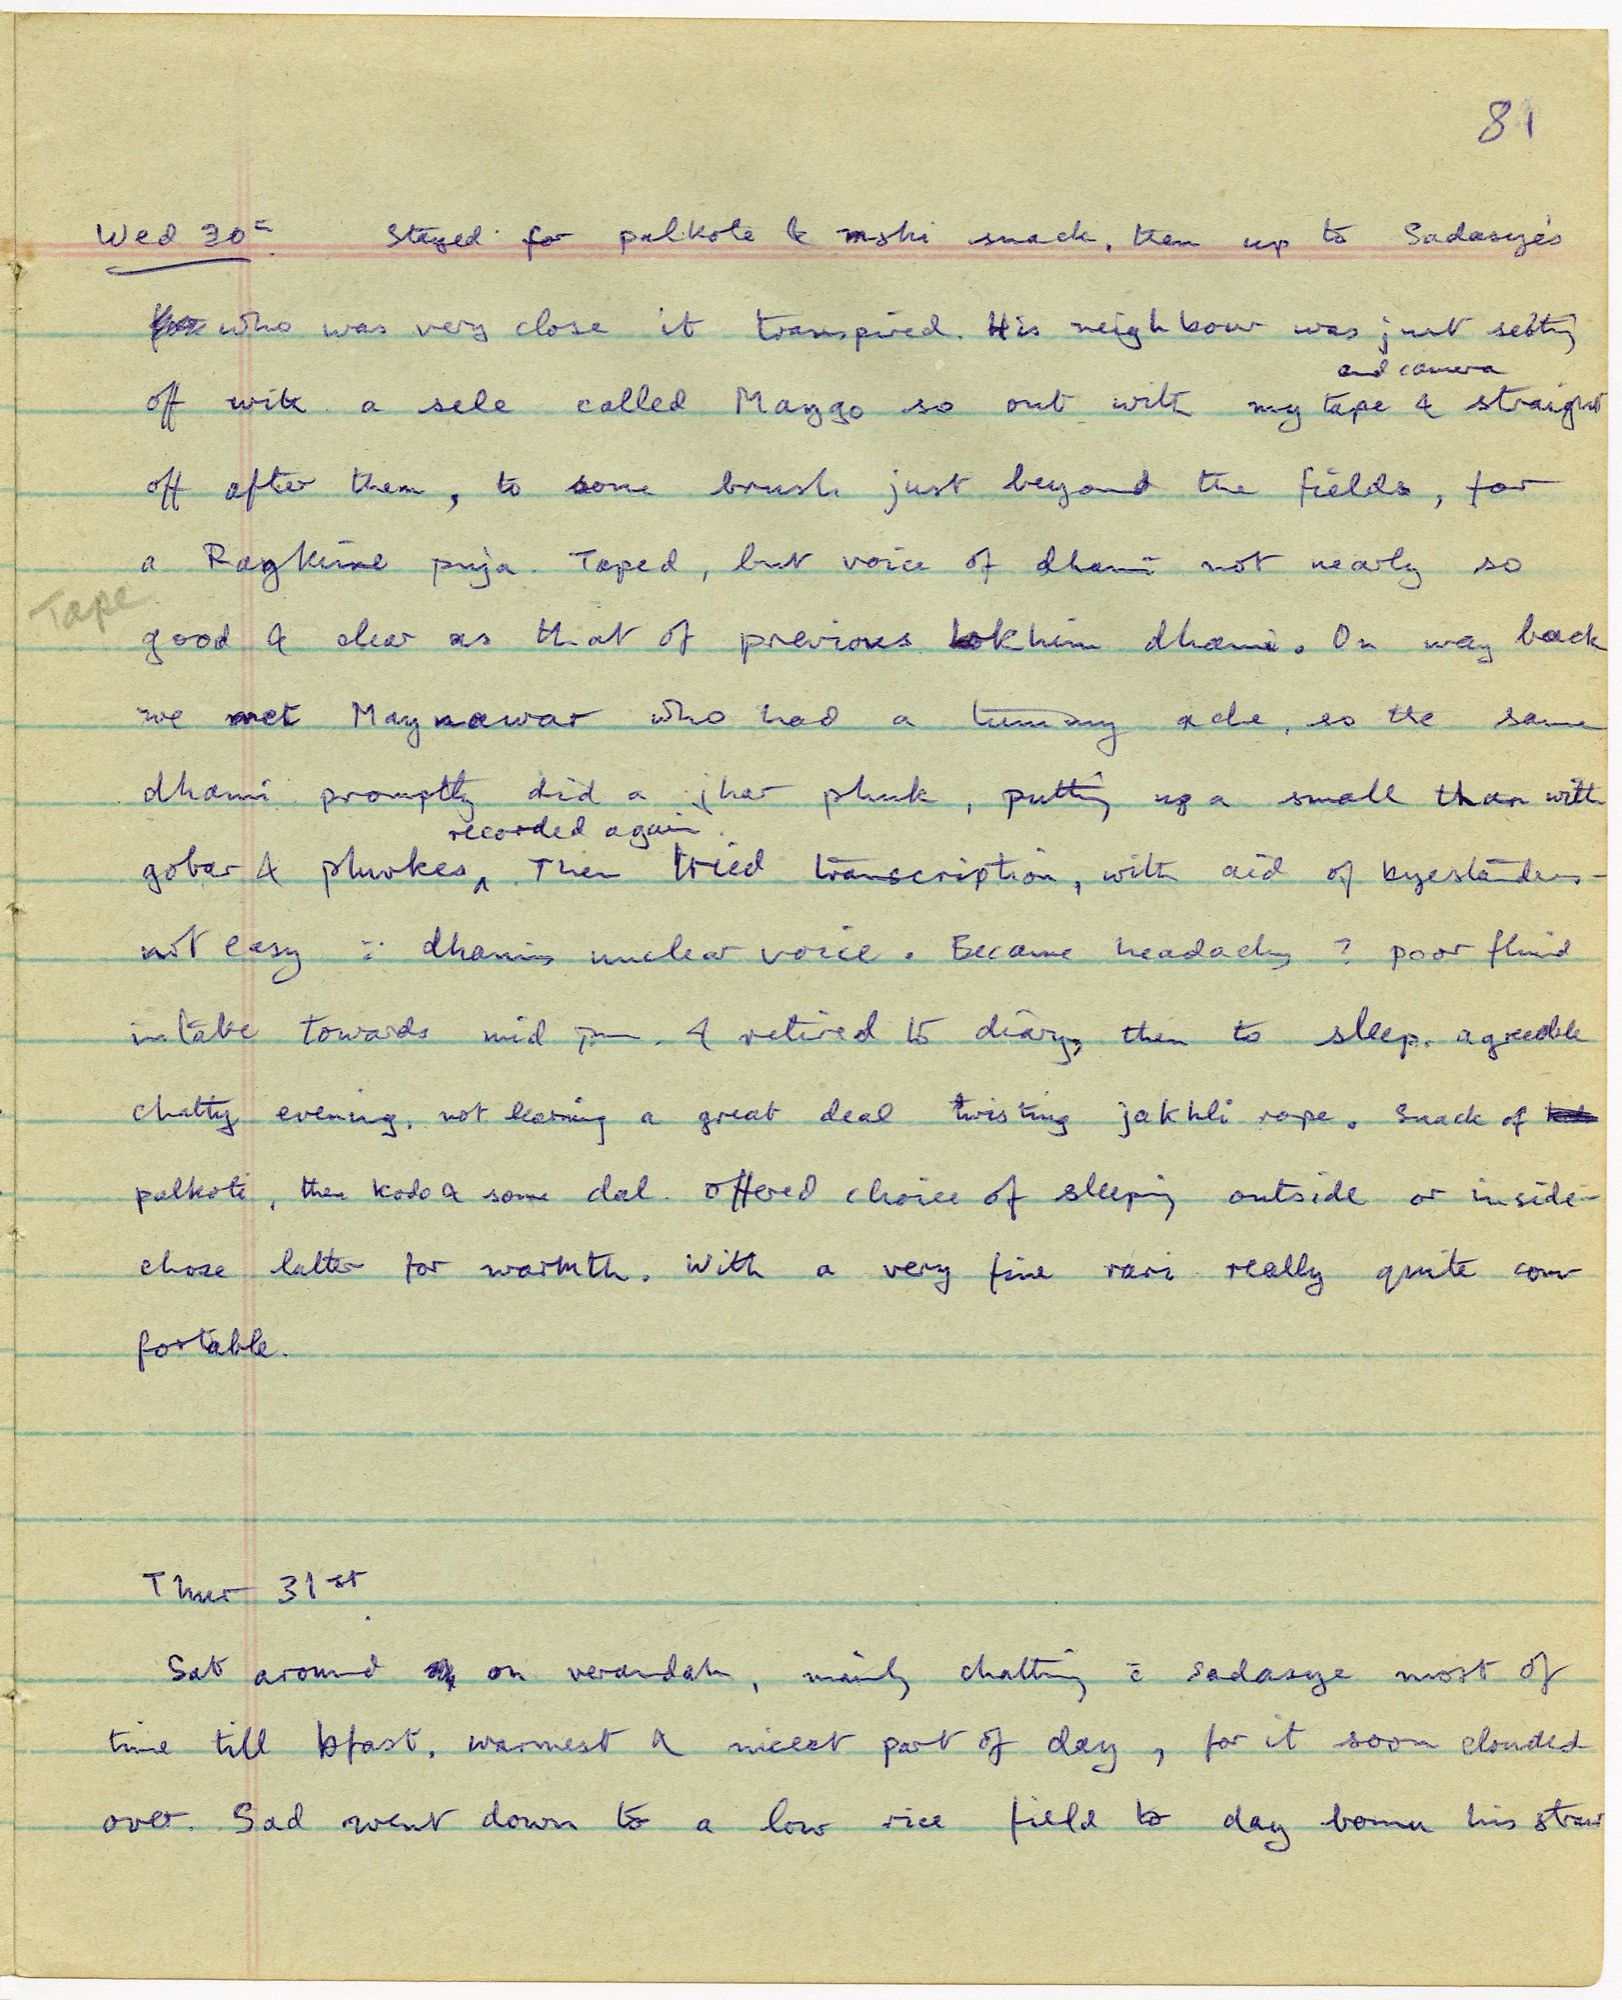 81
Wed 30th. Stayed for palkote & moshi snack, then up to Sadasye's
who was very close it transpired. His neighbour was just setting
and camera
off with a sele called Maygo so out with my tape & straight
off after them, to some brush just beyond the fields, for
a Ragkime puja. Taped, but voice of dhami not nearly so
Tape
good & clear as that of previous lokhim dhami. On way back
we met Maynawar who had a tummy ache, so the same
dhami promptly did a jhar phuk, putting up a small than with
recorded again.
gobar & phurkes ^ Then tried transcription, with aid of byestanders -
not easy ∵ dhamis unclear voice. Became headachy ? poor fluid
intake towards mid pm. & retired to diary, then to sleep. agreeable
chatty evening, not learning a great deal twisting jakhli rope. Snack of
palkote, then kodo & some dal. Offered choice of sleeping outside or inside -
chose latter for warmth. With a very fine rari really quite com
fortable.
Thur 31st
Sat around on verandah, mainly chatting c̄ Sadasye most of
time till bfast, warmest & nicest part of day, for it soon clouded
over. Sad went down to a low rice field to day his straw